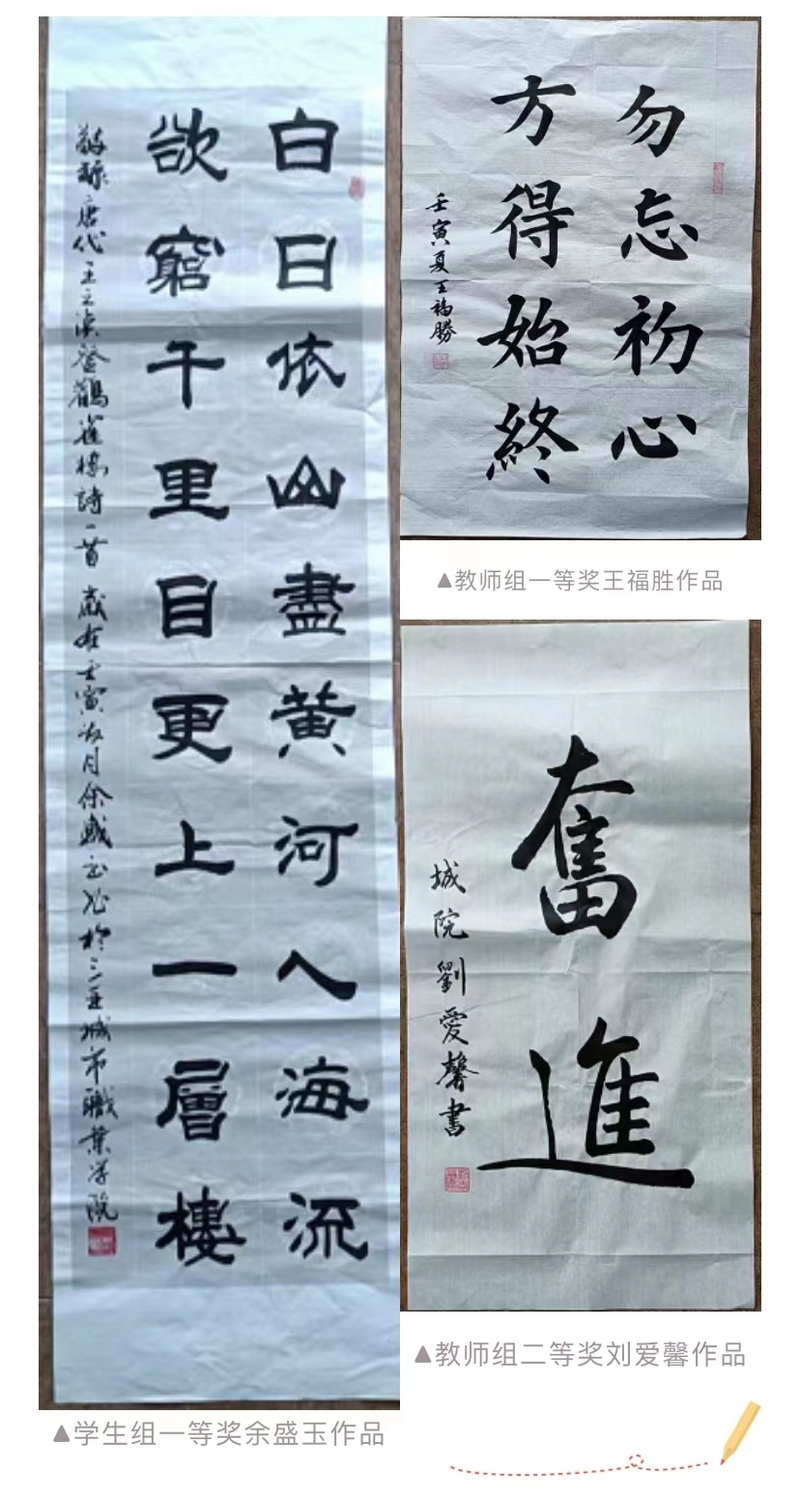 白日依山盡黄河入海流
欲窮千里目更上一層樓
敬錄唐代王之渙登鸛雀樓詩一首 歲在壬寅月余盛玉书於三亚城市職業学院
▲学生组一等奖余盛玉作品
勿忘初心
方得始終
壬寅夏王福勝
▲教师组一等奖王福胜作品
奮進
城院劉愛馨書
▲教师组二等奖刘爱馨作品